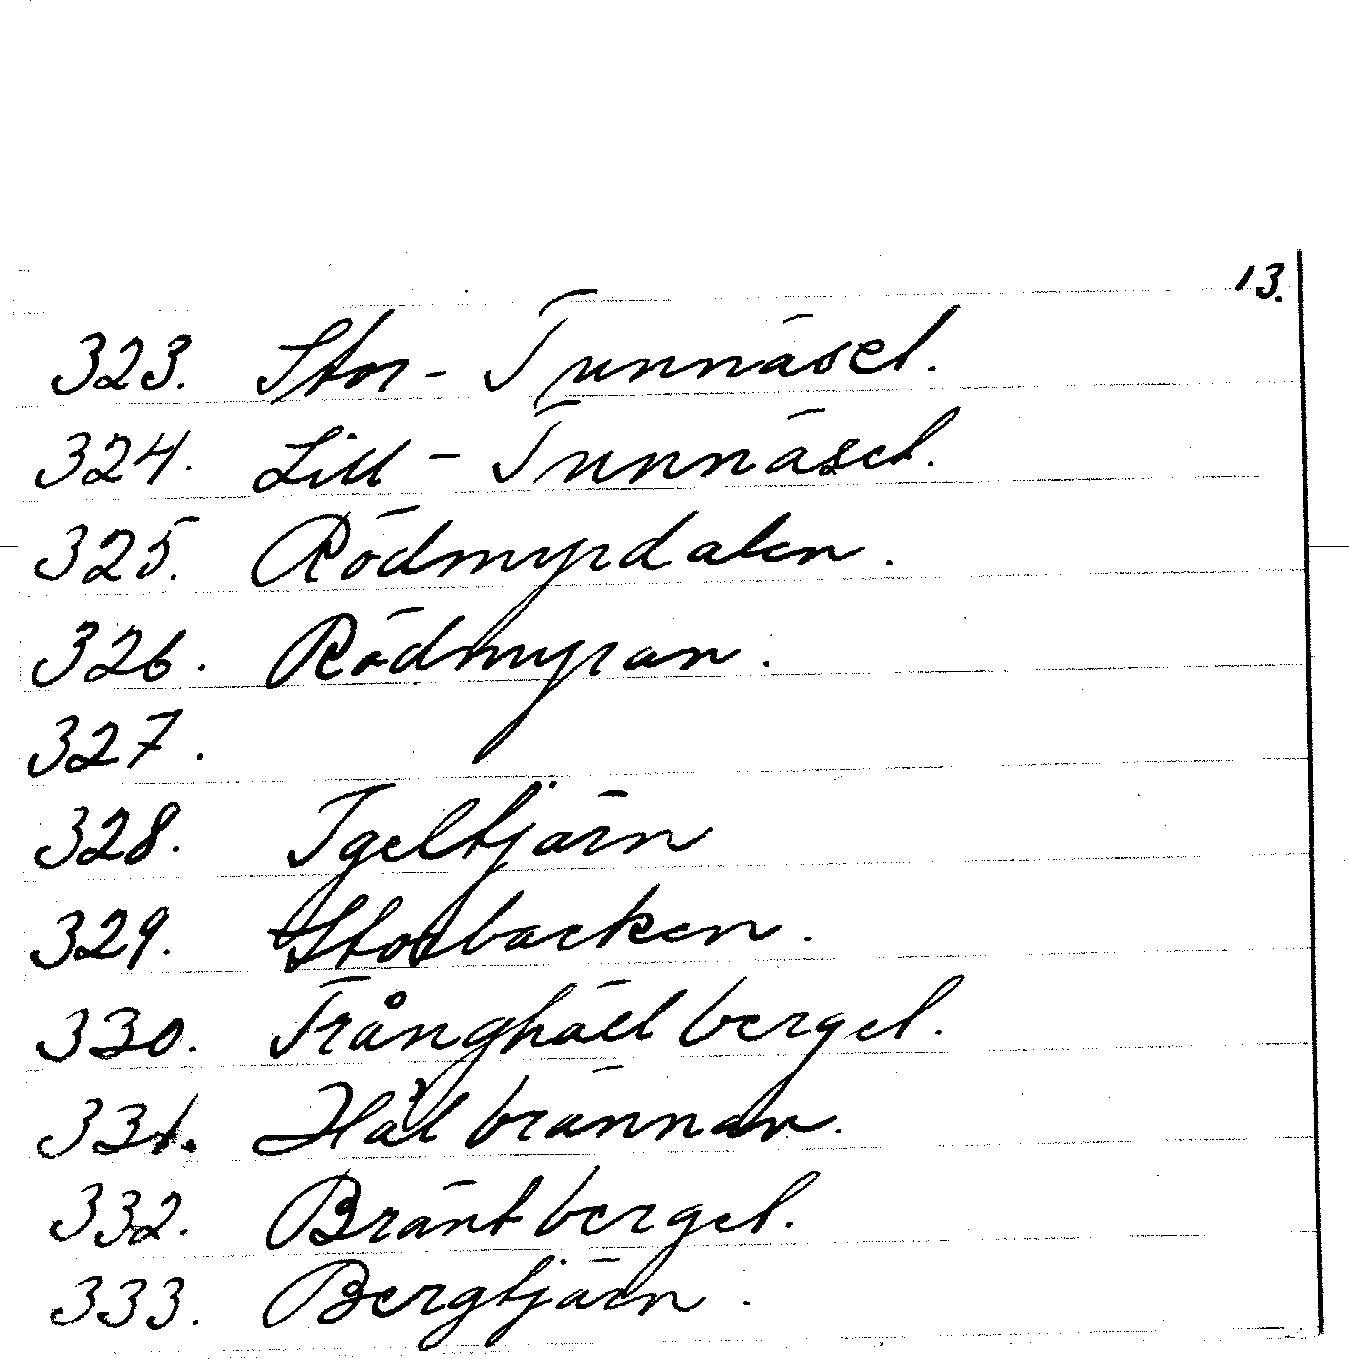 13.
323. Stor-Tunnäset.
324. Lill-Tunnäset.
325. Rödmyrdalen.
326. Rödmyran.
327.
328. Igeltjärn
329. Storbacken.
330. Trånghällberget.
331. Hålbrännan.
332. Bräntberget.
333. Bergtjärn.